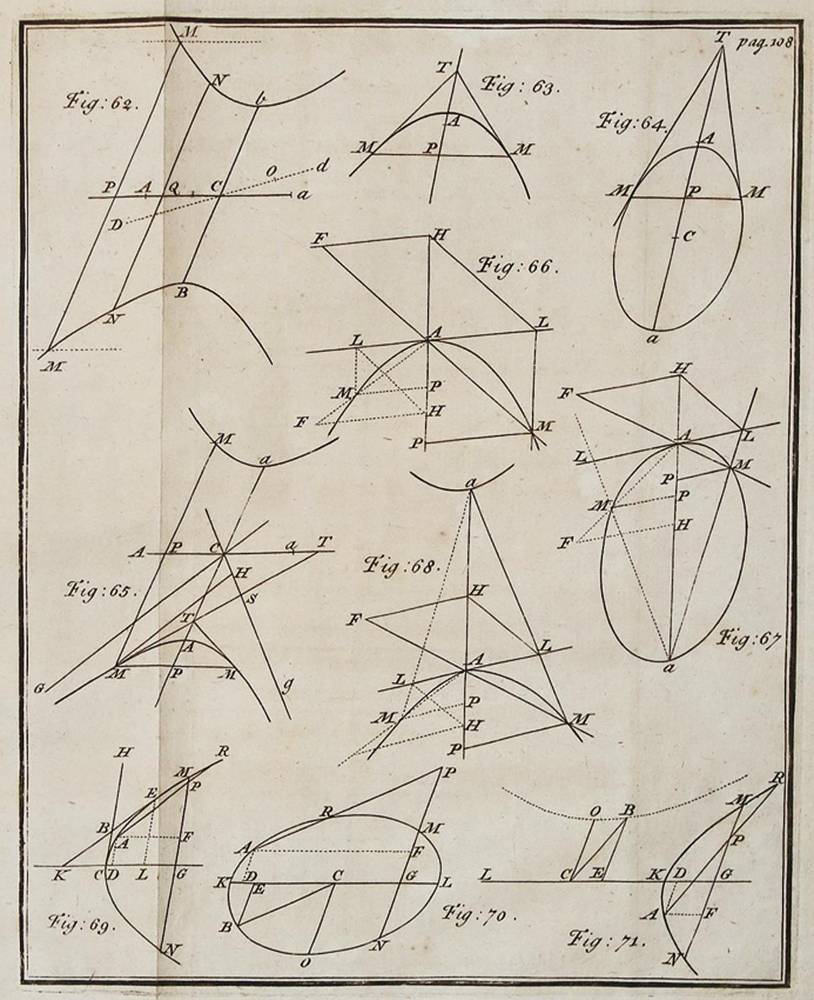 pag. 108
Fig: 62.
M
N
b
P A Q C O d
a
D
N
B
M
Fig: 63.
T
A
M P M
Fig: 64.
T
A
M P M
C
a
Fig: 66.
F H
L A L
M P
H
F
P M
Fig: 65.
M a
A P C a T
H
S
T
A
G M P M g
Fig: 68.
a
H
F
A L
L
P
M H
P M
Fig: 67
H
F
A L
L
P M
M P
F H
a
Fig: 69.
H R
M
E P
B
A F
K C D L G
N
Fig: 70.
P
R
M
A F
K D E C G L
B
N
O
Fig: 71.
R
O B M
P
L C E K D G
A F
N